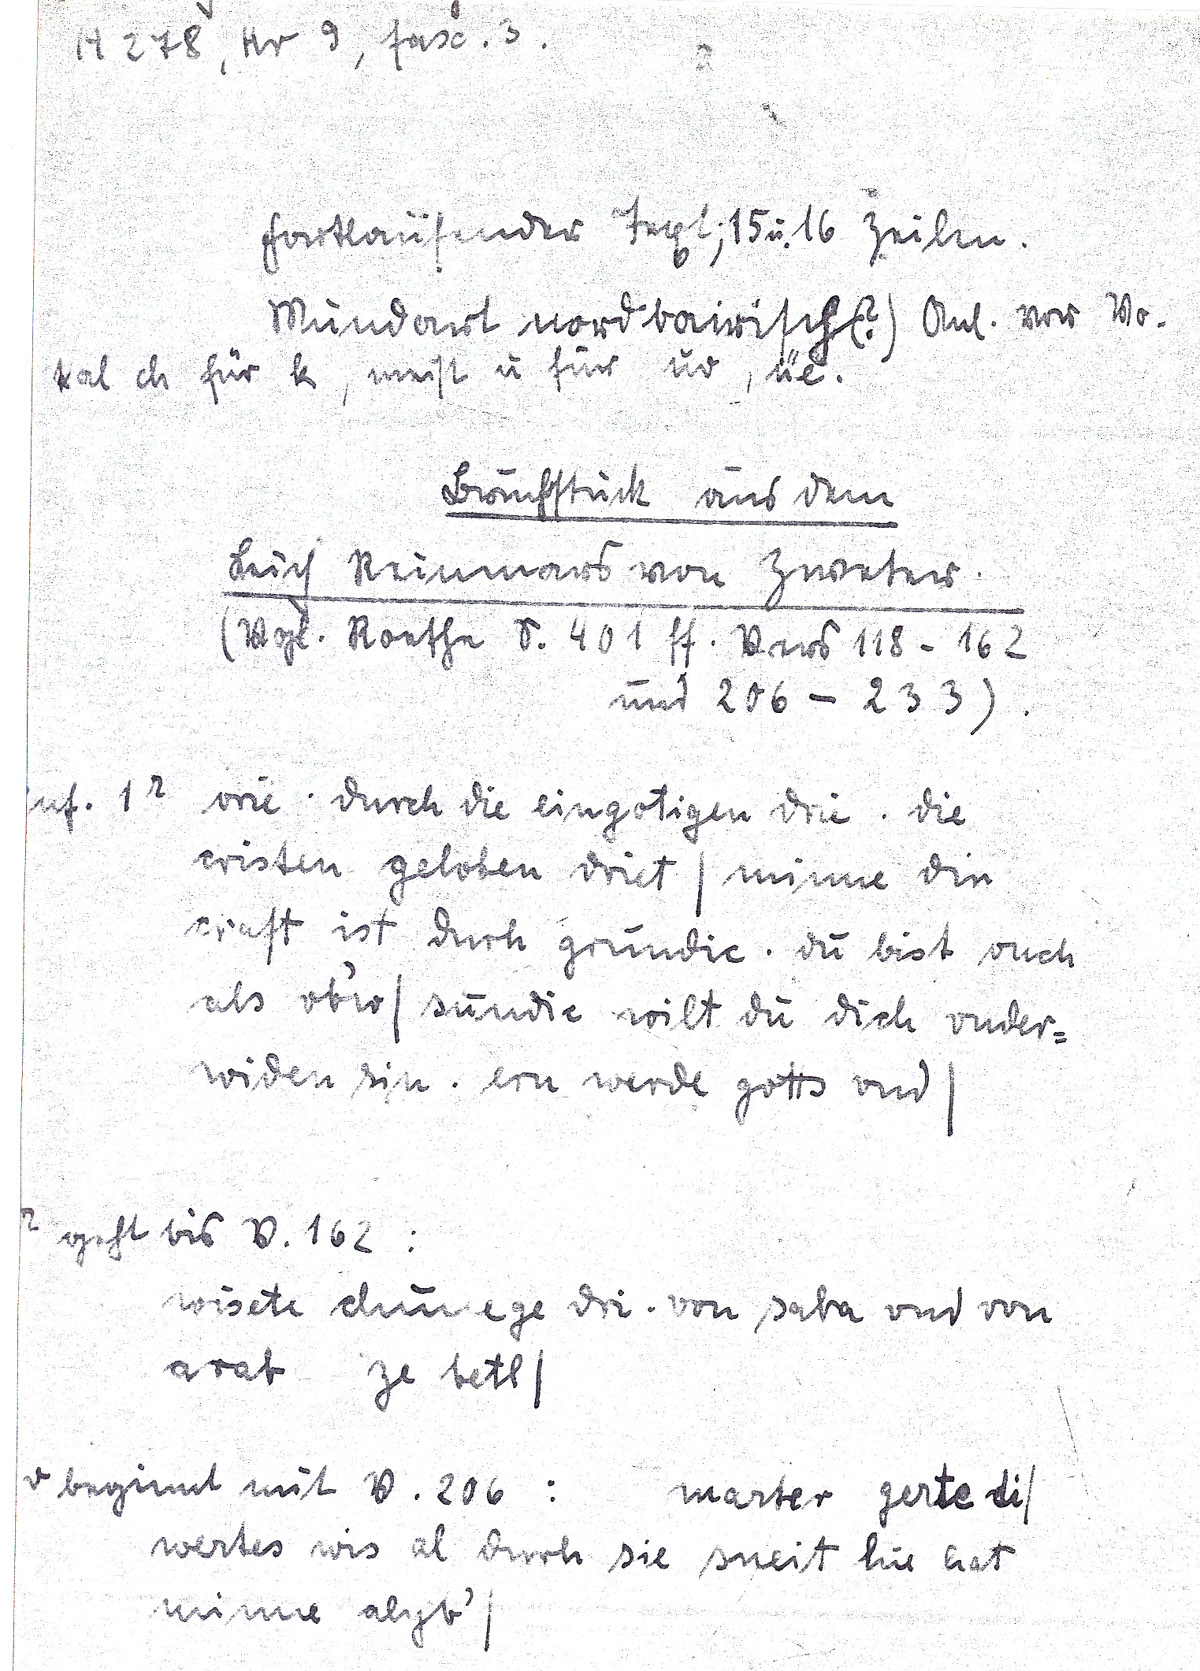 H 278, Nr 9, fasc. 3.
2
Fortlaufender Text; 15 u. 16 Zeilen.
Mundart nordbairisch (?) Anl. vor Vo-
kal ch für k, meist u für uo, üe.
Bruchstück aus dem
Leich Reinmars von Zweter.
(Vgl. Roethe S. 401 ff. Vers 118 - 162
und 206 - 233).
Anf. 1r orie . durch die eingotigen drie . die
cristen geloben driet | minne din
craft ist durh grundic . du bist ouch
als ob'w | sundic wilt du dich under=
widen sin . ern werde gotts vnd |
r geht bis V. 162 :
wisete chunege dri . von saba vnd von
arab ze betl |
v beginnt mit V. 206 : marter gerte di |
wertes wis al durh sie sneit hie hat
minne alyb' |